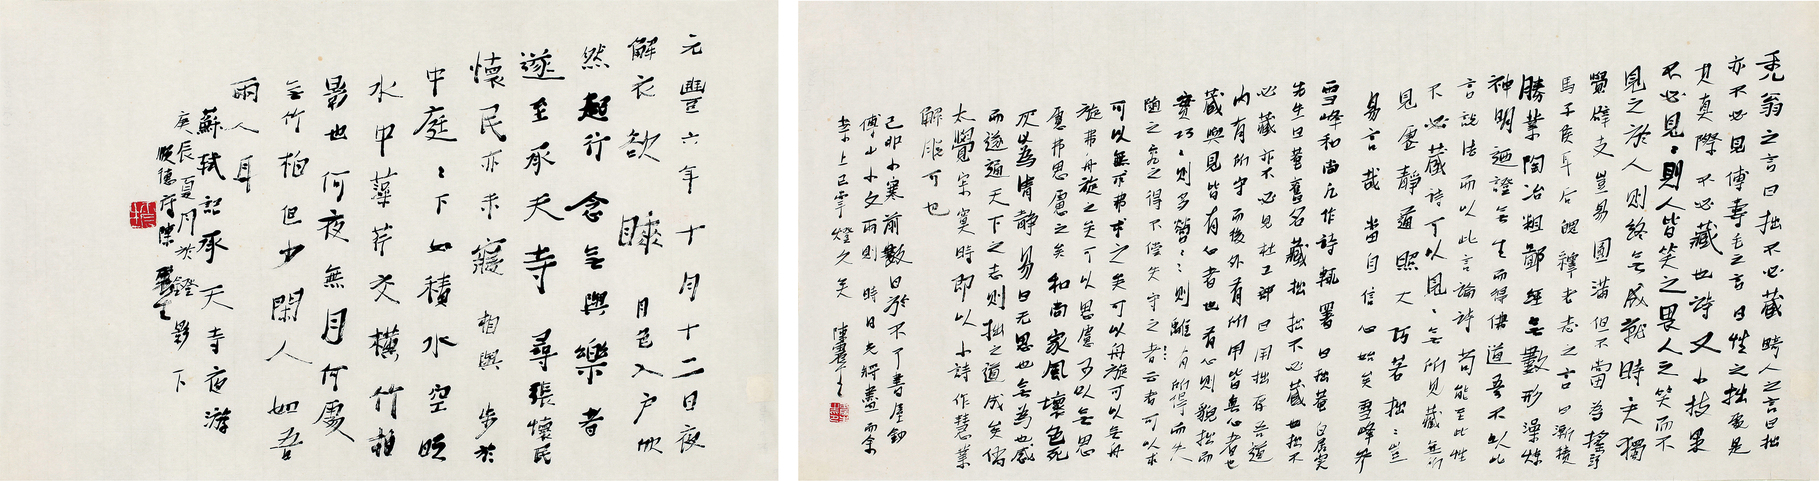 禿翁之言曰拙不必藏畸人之言曰拙
亦不必見傅青毛之言曰性之拙處是
其真際不必藏也詩又小技果
不必見〻則人皆笑之畏人之笑而不
見之於人則終無成就時夫獨
覺辟支豈易圓滿但不當為搖
馬子侯耳后魏釋老志之言曰漸積
勝業陶冶粗鄙經無數形澡煉
神明迺證無生而得佛道吾不以此
言說法而以此言論詩苟能至此性
不必藏詩可以見〻無所見藏無所
見虛靜遍照大巧若拙〻豈
易言哉當自信心始矣雪峰參
雪峰和尚凡作詩輒署曰拙菴白居實
先生曰菴舊名藏拙拙不必藏也拙不
必藏亦不必見杜工部曰用拙存吾道
內有所守而後外有所用皆無心者也
藏與見皆有心者也有心則貌拙而
實巧〻則多營〻則雖有所得而失
隨之矣之得不償失守之者云者可以求
可以無求弗求之矣可以舟旋可以無舟
旋弗舟旋之矣可以思慮可以無思
慮弗思慮之矣和尚家風壞色死
灰以為清靜易曰无思也無為也感
而遂通天下之志則拙之道成矣儻
太覺寂寞時即以小詩作慧業
解脫可也
己卯小寒前數日於不了書屋鈔
傅山小文兩則時日光將盡而余
案上已掌燈久矣 陳
元豐六年十月十二日夜
解衣欲睡月色入戶欣
然起行念無與樂者
遂至承天寺尋張懷民
懷民亦未寢相與步於
中庭〻下如積水空明
水中藻荇交橫竹柏
影也何夜無月何處
無竹柏但少閑人如吾
兩人耳
蘇軾記承天寺夜游
庚辰夏月於燈影下
順德府陳